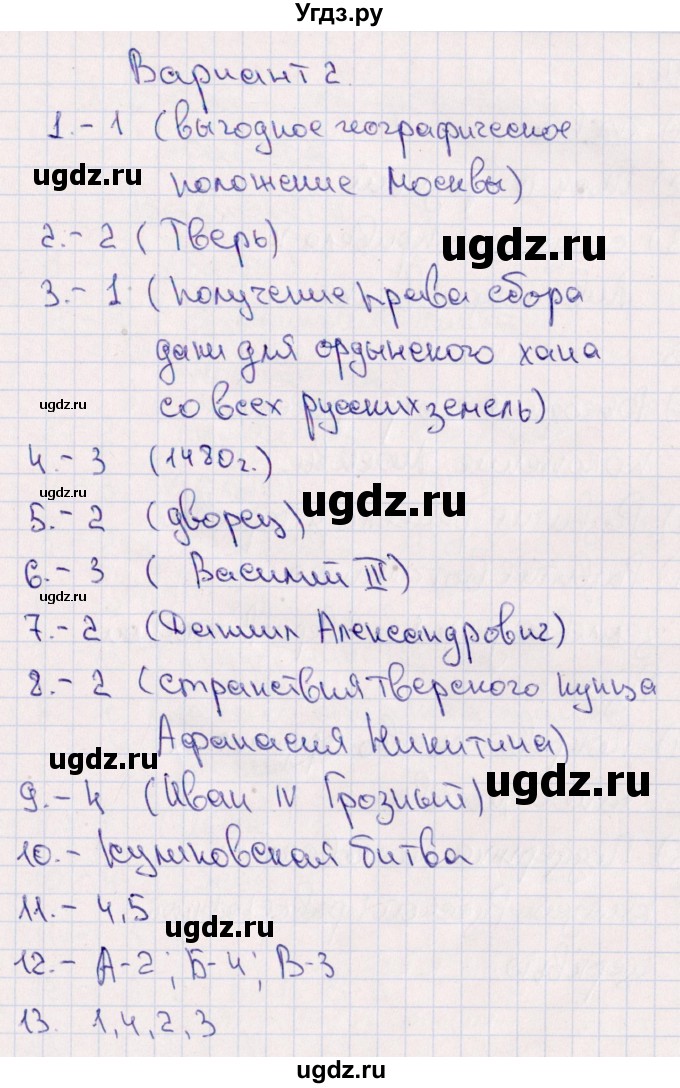 Угдз.ру
Вариант 2.
1.- 1 (выгодное географическое
ugdz.ru положение Москвы)
2.- 2 (Тверь) ugdz.ru
3.- 1 (получение права сбора
дани для ордынского хана
ugdz.ru со всех русских земель)
4.- 3 (1480г.)
ugdz.ru ugdz.ru
5.- 2 (дворец)
6.- 3 (Василий III)
ugdz.ru
7.- 2 (Даниил Александрович)
8.- 2 (странствия тверского купца
ugdz.ru Афанасия Никитина)
ugdz.ru
9.- 4 (Иван IV Грозный)
10.- Куликовская битва
11.- 4,5 ugdz.ru
12.- А-2; Б-4; В-3
13. 1,4,2,3
ugdz.ru